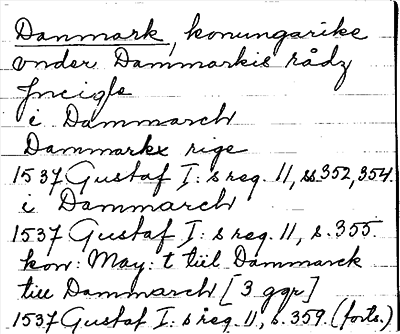 Danmark, konungarike
vnder Dammarkis rådz
Jncigle
i Dammarch
Dammarkx rige
1537 Gustaf I:s reg. 11, ss 352, 354.
i Dammarch
1537 Gustaf I:s reg. 11, s. 355
kon: May: t tiil Dammarck
tiil Dammarch [3 ggr]
1537 Gustaf I:s reg. 11, s. 359 (forts.)